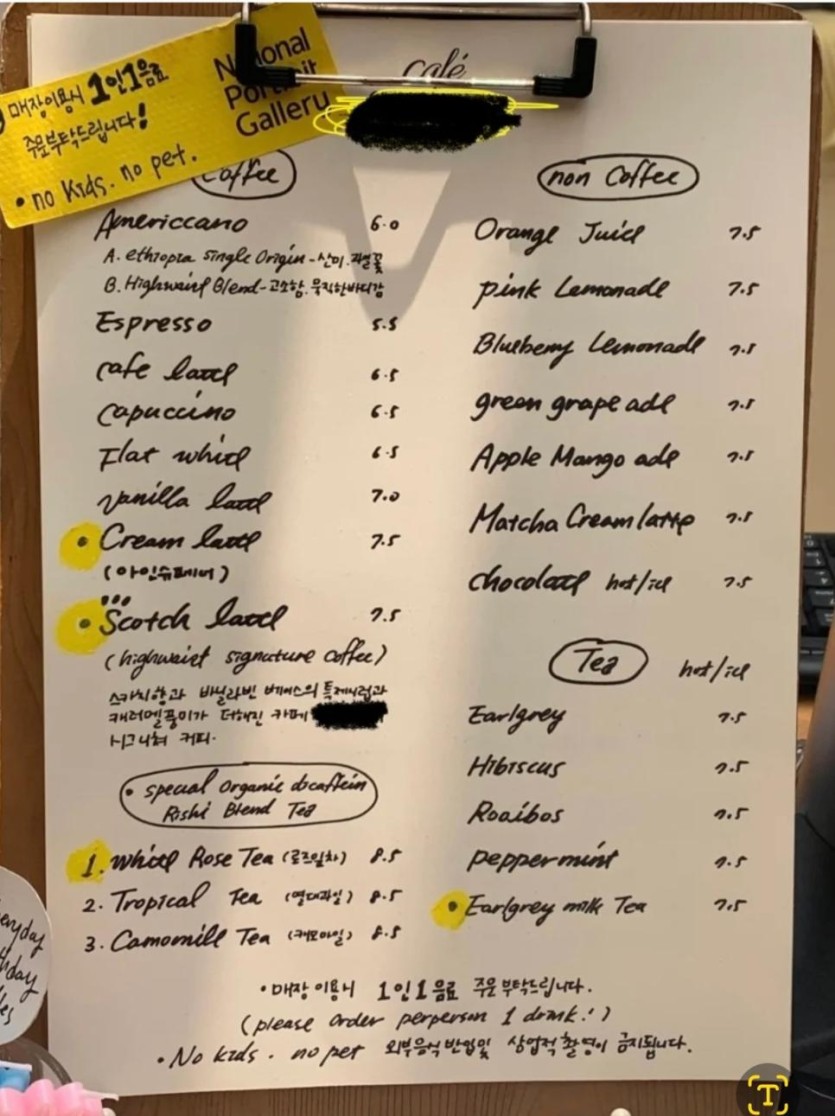 매장이용시 1인1음료
주문부탁드립니다!
• no kids. no pet.
National
Portrait
Gallery
café
Coffee
Americcano 6.0
A. ethiopia Single Origin - 산미.
B. Highwaist Blend - 고소함. 묵직한바디감
Espresso 5.5
cafe latte 6.5
capuccino 6.5
Flat white 6.5
Vanilla latte 7.0
• Cream latte 7.5
(아인슈페너)
• Scotch latte 7.5
(highwaist signature coffee)
스카치향과 바닐라빈 베이스의 특제시럽과
캐러멜풍미가 더해진 카페
시그니쳐 커피.
• special organic decaffein
Rishi Blend Tea
1. White Rose Tea (로즈잎차) 8.5
2. Tropical Tea (열대과일) 8.5
3. Camomill Tea (캐모마일) 8.5
non Coffee
Orange Juice 7.5
pink Lemonade 7.5
Blueberry Lemonade 7.5
green grape ade 7.5
Apple Mango ade 7.5
Matcha Cream latte 7.5
chocolate hot/ice 7.5
Tea hot/ice
Earlgrey 7.5
Hibiscus 7.5
Rooibos 7.5
peppermint 7.5
• Earlgrey milk Tea 7.5
• 매장이용시 1인1음료 주문부탁드립니다.
(please order perperson 1 drink!)
• No kids. no pet 외부음식반입및 상업적촬영이 금지됩니다.